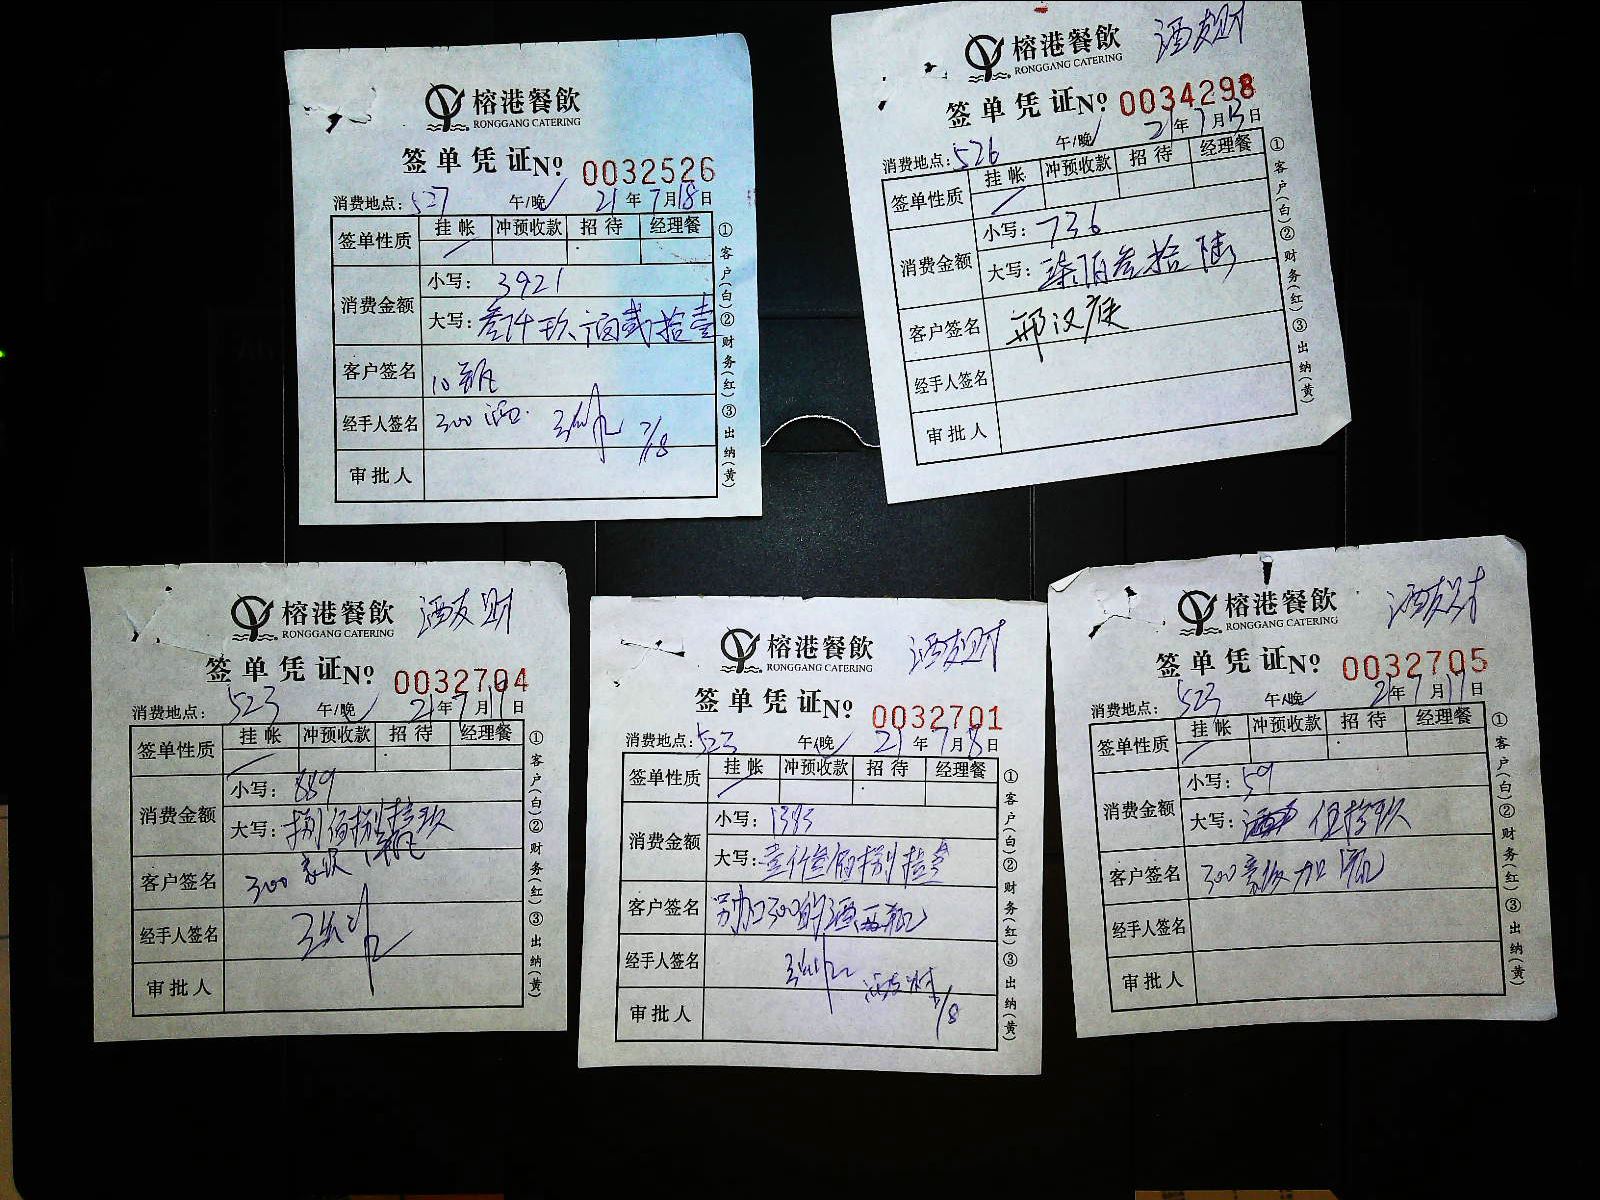 榕港餐飲
RONGGANG CATERING
签单凭证 № 0032526
消费地点: 527 午/晚 21年7月18日
签单性质 挂帐 冲预收款 招待 经理餐
消费金额 小写: 3921
大写: 叁仟玖佰贰拾壹
客户签名 10瓶
经手人签名 300 酒 7/8
审批人
①客户(白)②财务(红)③出纳(黄)
榕港餐飲
RONGGANG CATERING
签单凭证 № 0034298
消费地点: 526 午/晚 21年7月13日
签单性质 挂帐 冲预收款 招待 经理餐
消费金额 小写: 736
大写: 柒佰叁拾陆
客户签名 邢汉庭
经手人签名
审批人
①客户(白)②财务(红)③出纳(黄)
榕港餐飲
RONGGANG CATERING
签单凭证 № 0032704
消费地点: 523 午/晚 21年7月17日
签单性质 挂帐 冲预收款 招待 经理餐
消费金额 小写: 889
大写: 捌佰捌拾玖
客户签名 300
经手人签名
审批人
①客户(白)②财务(红)③出纳(黄)
榕港餐飲
RONGGANG CATERING
签单凭证 № 0032701
消费地点: 523 午/晚 21年7月8日
签单性质 挂帐 冲预收款 招待 经理餐
消费金额 小写: 1383
大写: 壹仟叁佰捌拾叁
客户签名 另加300的酒五瓶
经手人签名
审批人 /8
①客户(白)②财务(红)③出纳(黄)
榕港餐飲
RONGGANG CATERING
签单凭证 № 0032705
消费地点: 523 午/晚 21年7月17日
签单性质 挂帐 冲预收款 招待 经理餐
消费金额 小写: 59
大写: 伍拾玖
客户签名 300
经手人签名
审批人
①客户(白)②财务(红)③出纳(黄)